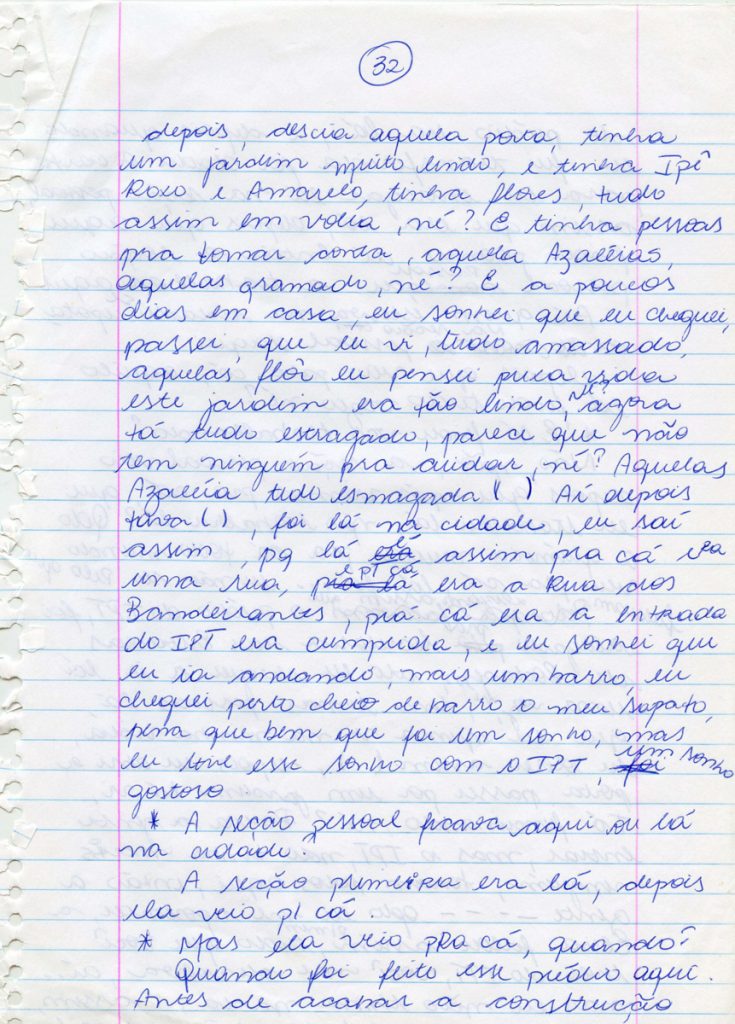 32
depois, descia aquela porta, tinha
um jardim muito lindo, e tinha Ipê
Roxo e Amarelo, tinha flores, tudo
assim em volta, né? E tinha pessoas
pra tomar conta, aquela Azaléias,
aquelas gramado, né? E a poucos
dias em casa, eu sonhei que eu cheguei,
passei, que eu vi, tudo amassado,
aquelas flôr eu pensei puxa vida
este jardim era tão lindo, né? agora
tá tudo estragado, parece que não
tem ninguém pra cuidar, né? Aquelas
Azaléia tudo esmagada ( ) Aí depois
tava ( ), foi lá na cidade, eu saí
assim, pq lá lá assim pra cá era
uma rua, e pra cá era a Rua dos
Bandeirantes, prá cá era a entrada
do IPT era cumprida, e eu sonhei que
eu ia andando, mais um barro, eu
cheguei perto cheio de barro o meu sapato,
pena que bem que foi um sonho, mas
eu tive esse sonho com o IPT, um sonho
gostoso
* A seção pessoal ficava aqui ou lá
na cidade?
A seção primeira era lá, depois
ela veio p/ cá.
* Mas ela veio pra cá, quando?
Quando foi feito esse prédio aqui.
Antes de acabar a construção